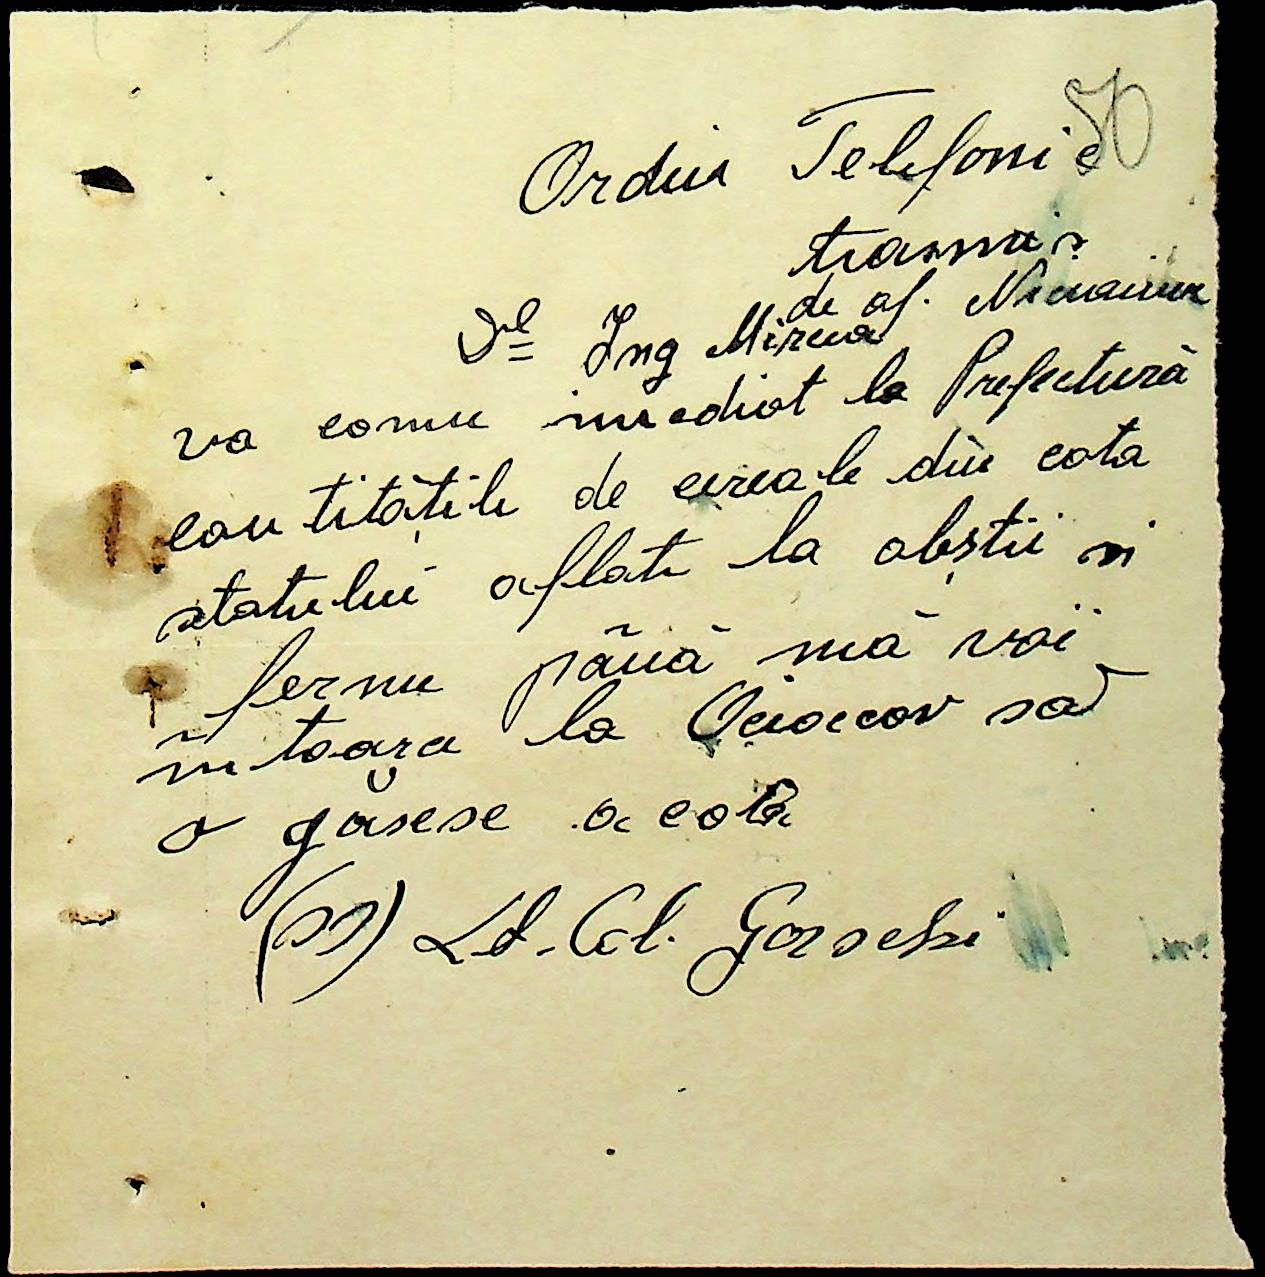 50
Ordin Telefonic
transmis
de af. Nicolaiew
Dl Ing Mircea
va comu imediat la Prefectură
cantitățile de cereale din cota
statului aflate la obștii și
ferme până mă voi
întoarce la Oceacov să
o găsesc acolo
(ss) Lt. Col. Gorschi